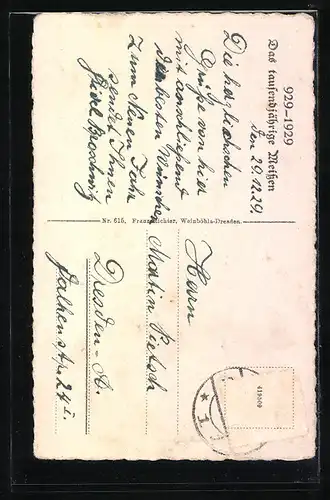 929–1929
Das tausendjährige Meißen
den 29.12.29.
Die herzlichsten
Grüße von hier
mit anschließend
den besten Wünschen
zum Neuen Jahr
sendet Ihnen
Nr. 615. Franz Richter, Weinböhla-Dresden.
Herrn
Martin Pietsch
Dresden-A.
24 I.
419509
* 1